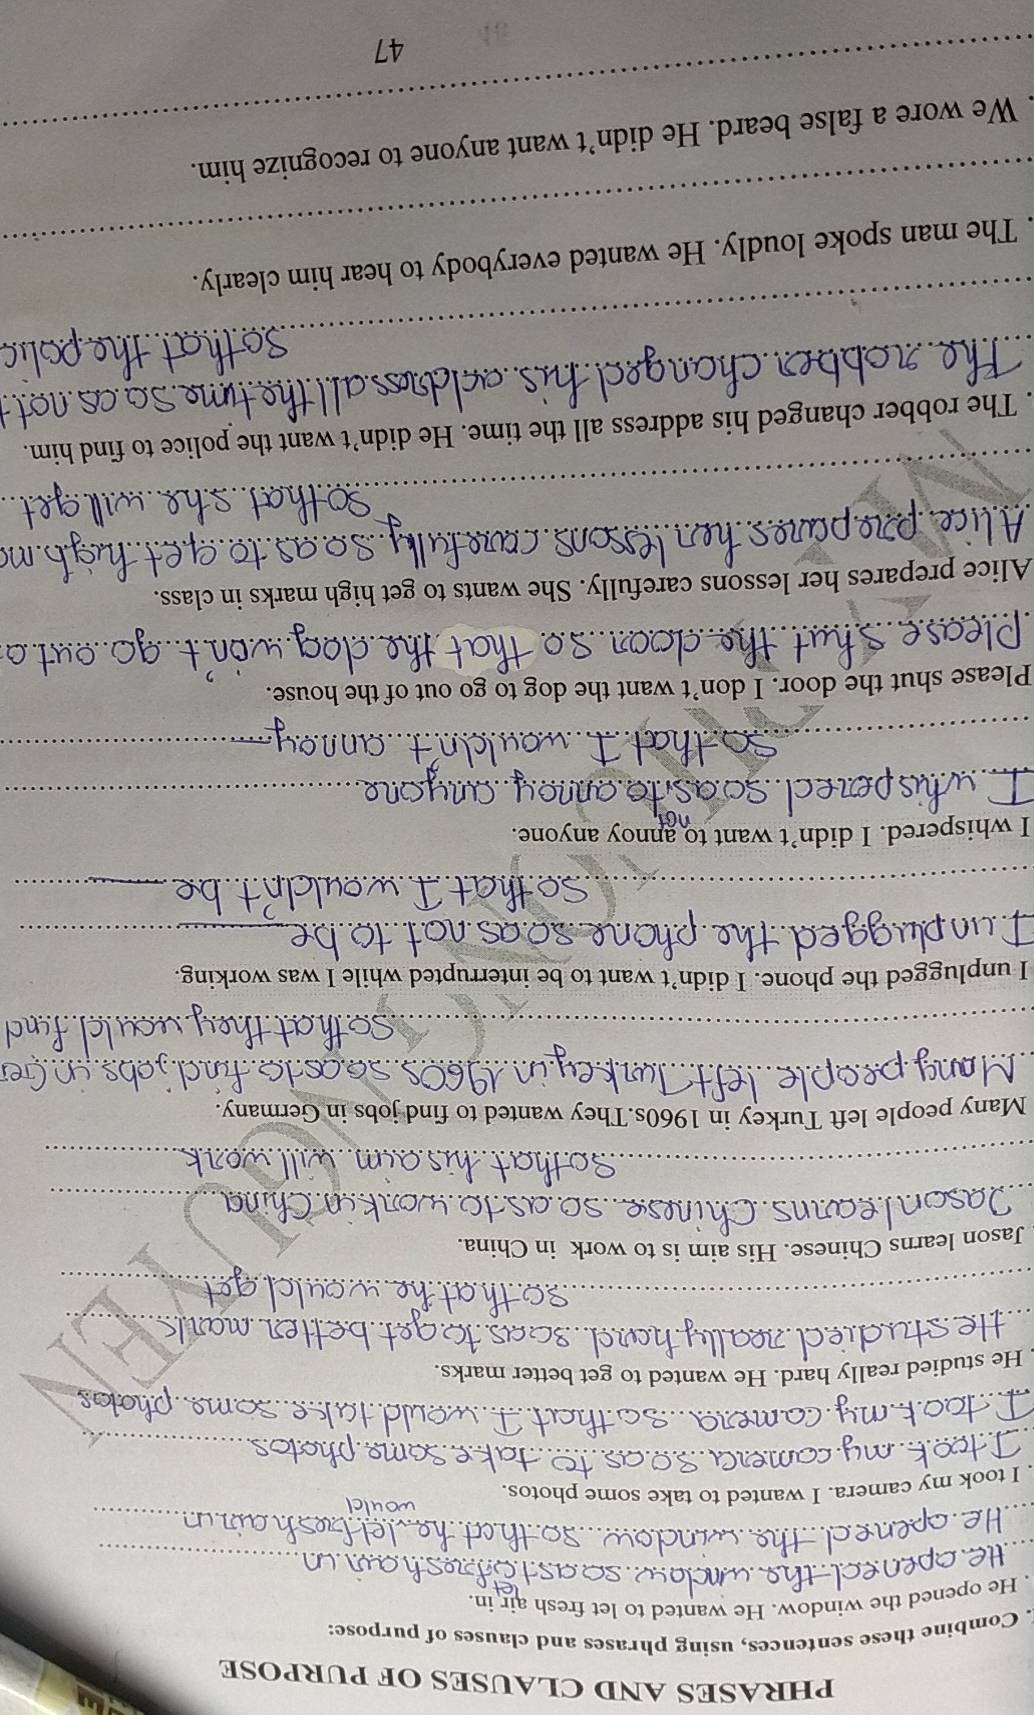 PHRASES AND CLAUSES OF PURPOSE
. Combine these sentences, using phrases and clauses of purpose:
. He opened the window. He wanted to let fresh air in.
He opened the window so as to let fresh air in
He opened the window so that he would let fresh air in
. I took my camera. I wanted to take some photos.
I took my camera so as to take some photos
I took my camera so that I would take some photos
. He studied really hard. He wanted to get better marks.
He studied really hard so as to get better marks
so that he would get
Jason learns Chinese. His aim is to work in China.
Jason learns Chinese so as to work in China
So that his aim will work
Many people left Turkey in 1960s.They wanted to find jobs in Germany.
Many people left Turkey in 1960s so as to find jobs in Ger
So that they would find
I unplugged the phone. I didn't want to be interrupted while I was working.
I unplugged the phone so as not to be
So that I wouldn't be
I whispered. I didn't want to annoy anyone.
I whispered so as not to annoy anyone
So that I wouldn't annoy
Please shut the door. I don't want the dog to go out of the house.
Please shut the door so that the dog won't go out o
Alice prepares her lessons carefully. She wants to get high marks in class.
Alice prepares her lessons carefully so as to get high ma
So that she will get
. The robber changed his address all the time. He didn't want the police to find him.
The robber changed his address all the time so as not t
So that the polic
. The man spoke loudly. He wanted everybody to hear him clearly.
. We wore a false beard. He didn't want anyone to recognize him.
47
MR PHUONG NGUYEN